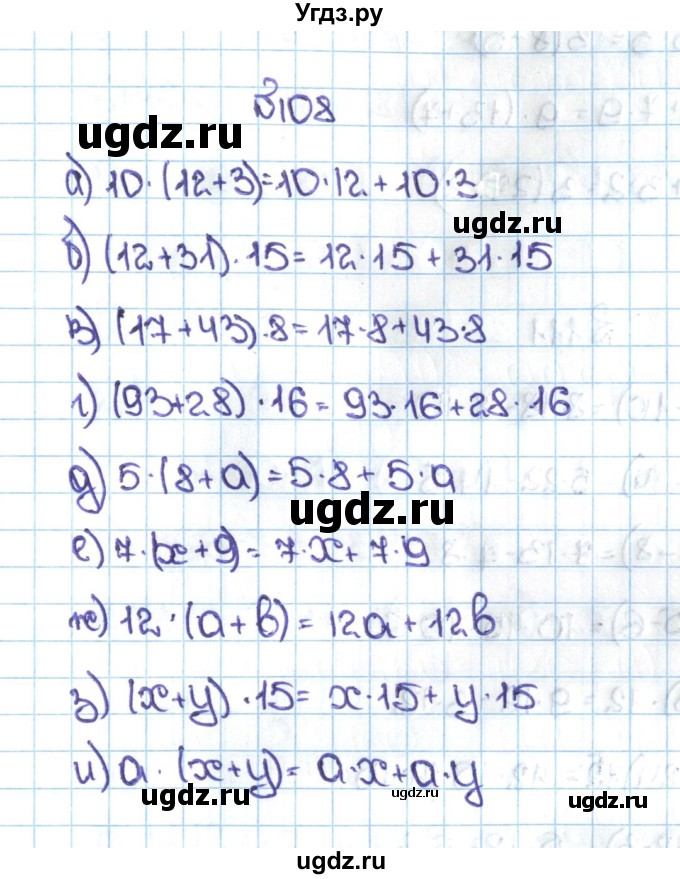 Угдз.ру
№108
ugdz.ru
а) 10·(12+3)=10·12+10·3
ugdz.ru
б) (12+31)·15=12·15+31·15
в) (17+43)·8=17·8+43·8
г) (93+28)·16=93·16+28·16
д) 5·(8+a)=5·8+5·a
ugdz.ru
е) 7·(x+9)=7·x+7·9
ж) 12·(a+b)=12a+12b
з) (x+y)·15=x·15+y·15
и) a·(x+y)=a·x+a·y
ugdz.ru ugdz.ru ugdz.ru
ugdz.ru